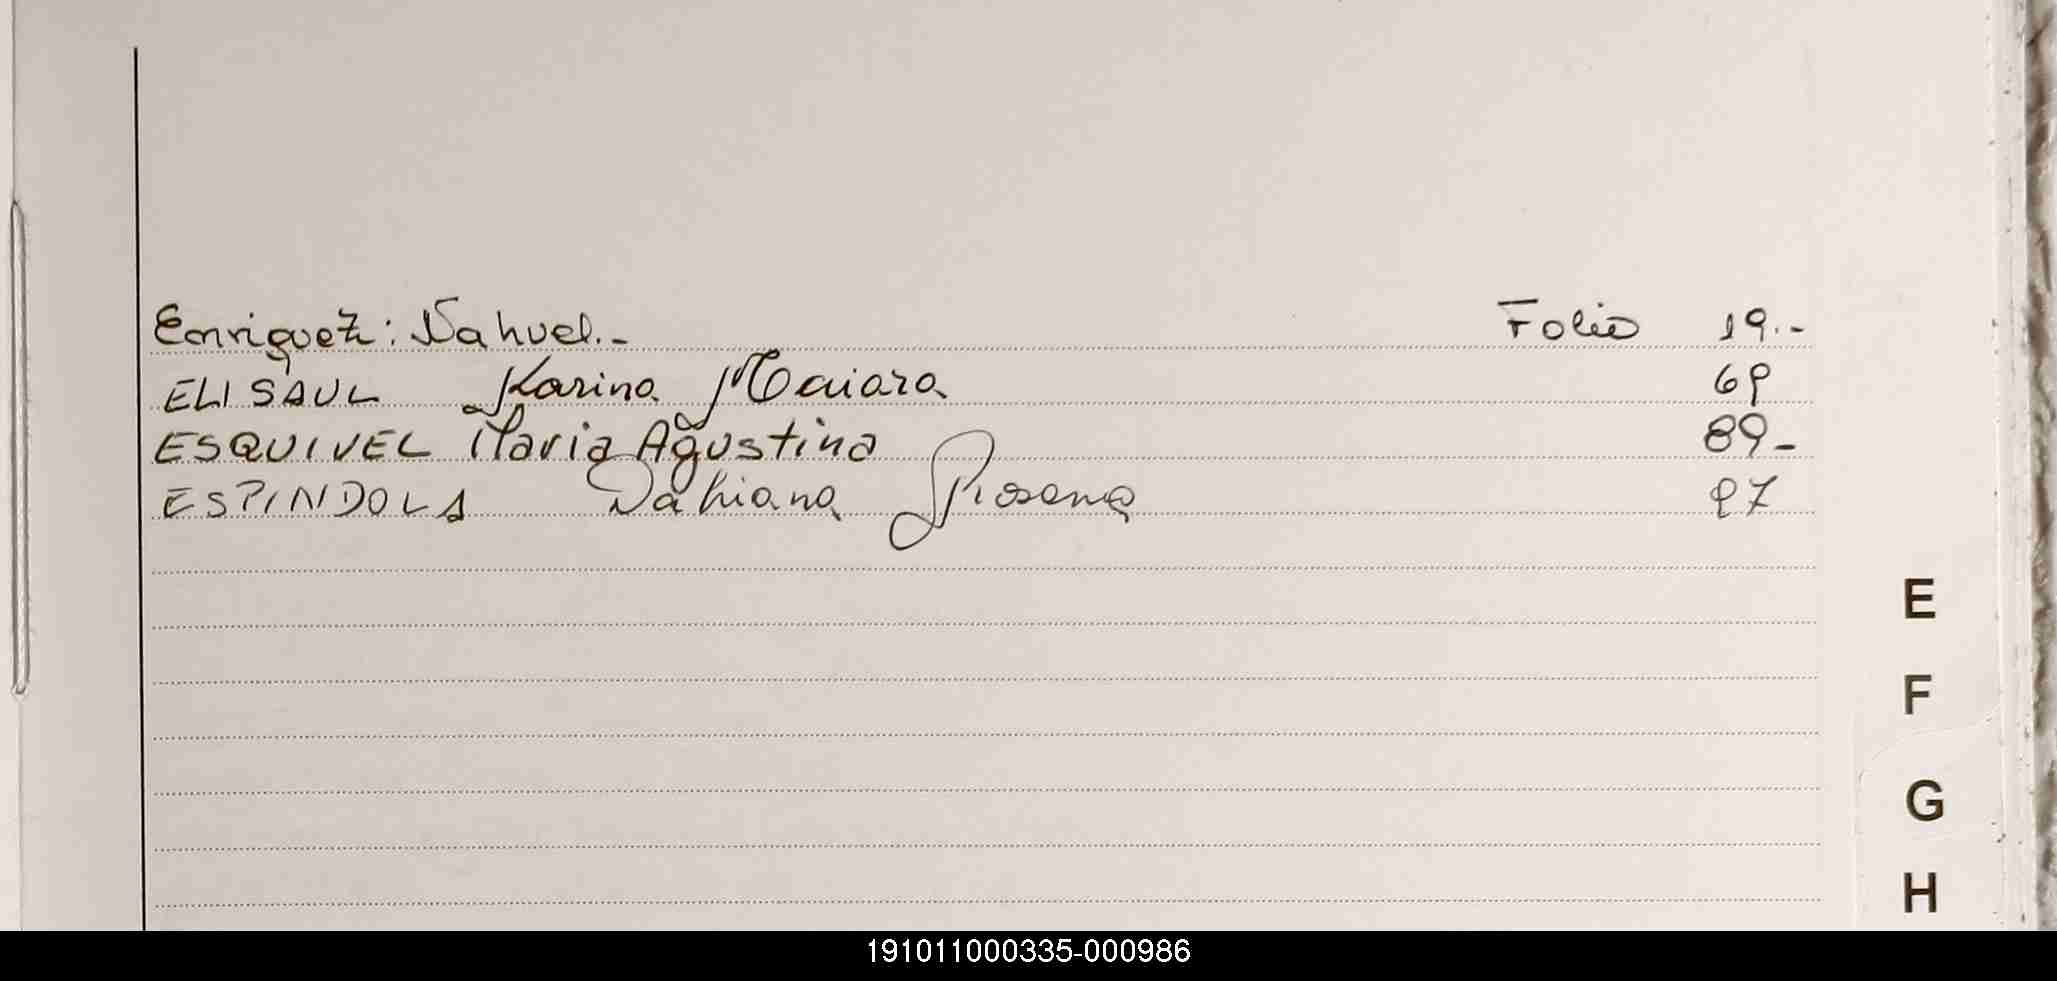 Enriquez: Nahuel.- Folio 19.-
ELISAUL Karina Maiara 69
ESQUIVEL Maria Agustina 89-
ESPINDOLA Dahiana Rosana 97
E
F
G
H
191011000335-000986